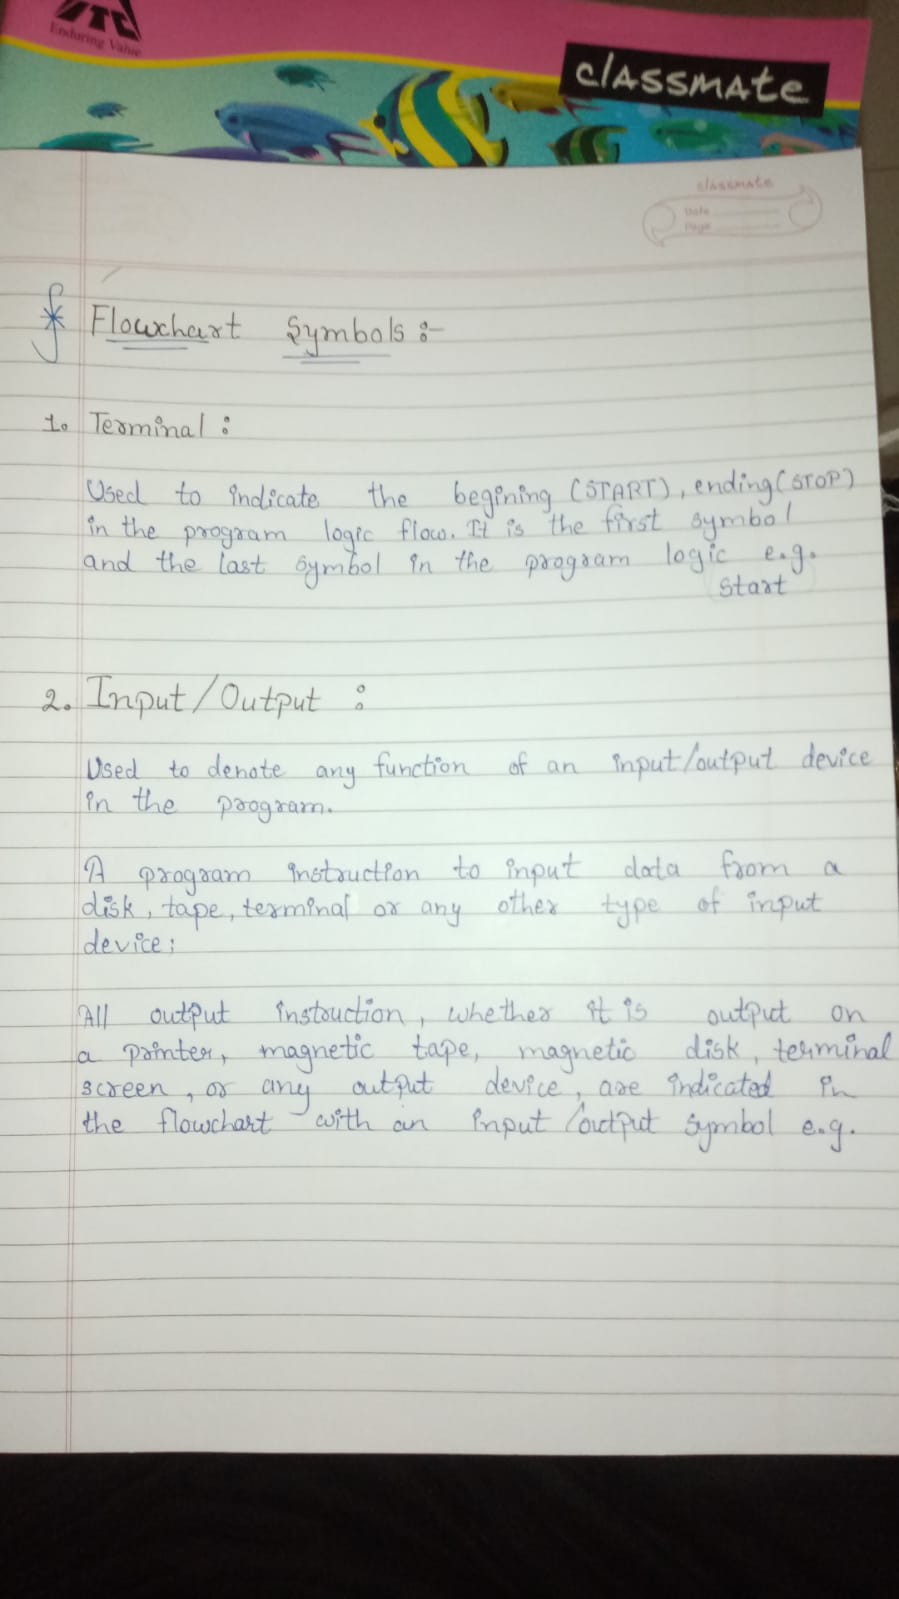 ITC
Enduring Value
classmate
classmate
Date
Page
Flowchart Symbols :-
1. Terminal :
Used to indicate the begining (START), ending (STOP)
in the program logic flow. It is the first symbol
and the last symbol in the program logic e.g.
Start
2. Input/Output :
Used to denote any function of an input/output device
in the program.
A program instruction to input data from a
disk, tape, terminal or any other type of input
device;
All output instruction, whether it is output on
a printer, magnetic tape, magnetic disk, terminal
screen, or any output device, are indicated in
the flowchart with an input/output symbol e.g.